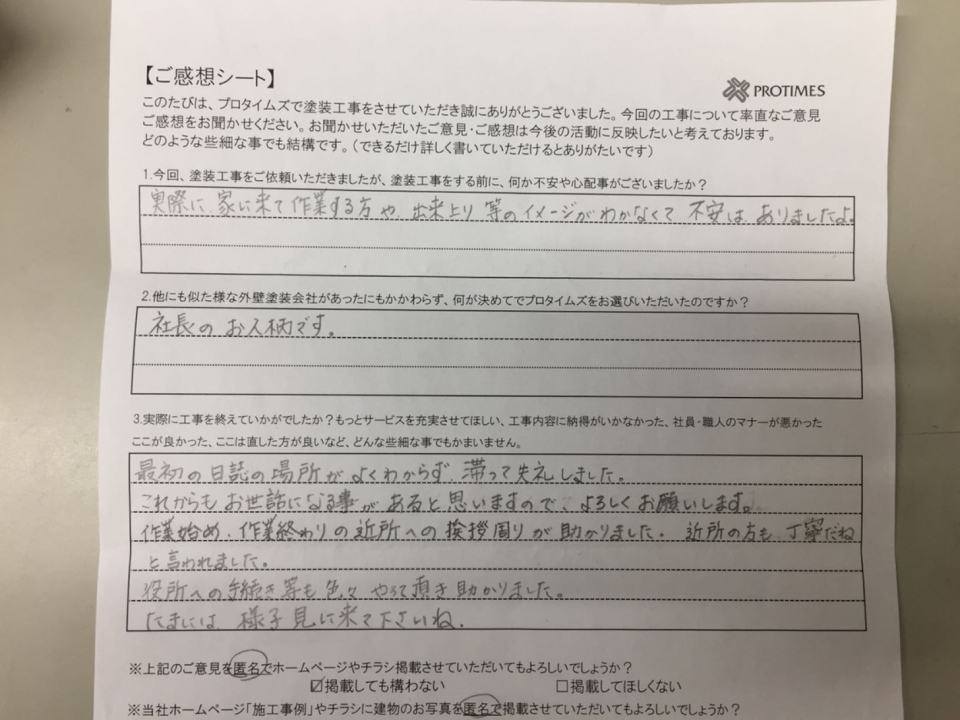 【ご感想シート】
PROTIMES
このたびは、プロタイムズで塗装工事をさせていただき誠にありがとうございました。今回の工事について率直なご意見
ご感想をお聞かせください。お聞かせいただいたご意見・ご感想は今後の活動に反映したいと考えております。
どのような些細な事でも結構です。(できるだけ詳しく書いていただけるとありがたいです)
1.今回、塗装工事をご依頼いただきましたが、塗装工事をする前に、何か不安や心配事がございましたか?
実際に、家に来て作業する方や、出来上り等のイメージがわかなくて不安は、ありましたよ。
2.他にも似た様な外壁塗装会社があったにもかかわらず、何が決めてでプロタイムズをお選びいただいたのですか?
社長のお人柄です。
3.実際に工事を終えていかがでしたか?もっとサービスを充実させてほしい、工事内容に納得がいかなかった、社員・職人のマナーが悪かった
ここが良かった、ここは直した方が良いなど、どんな些細な事でもかまいません。
最初の日誌の場所がよくわからず、滞って失礼しました。
これからもお世話になる事があると思いますので、よろしくお願いします。
作業始め、作業終わりの近所への挨拶周りが助かりました。近所の方も、丁寧だね
と言われました。
役所への手続き等も色々やって頂き助かりました。
たまには、様子見に来て下さいね。
※上記のご意見を匿名でホームページやチラシ掲載させていただいてもよろしいでしょうか?
☑掲載しても構わない □掲載してほしくない
※当社ホームページ「施工事例」やチラシに建物のお写真を匿名で掲載させていただいてもよろしいでしょうか?